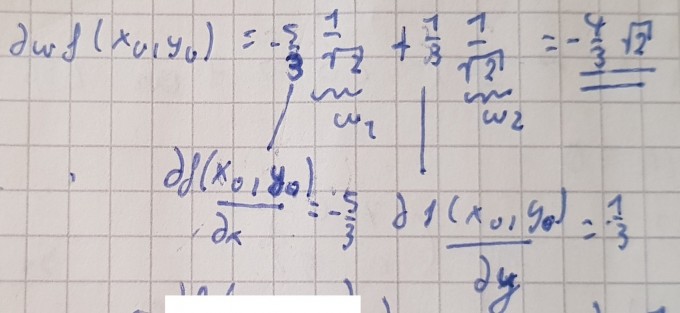 ∂w f(x₀,y₀) = -5/3 1/√2 + 1/3 1/√2 = -4/3 √2
w₁ w₂
∂f(x₀,y₀)/∂x = -5/3
∂f(x₀,y₀)/∂y = 1/3